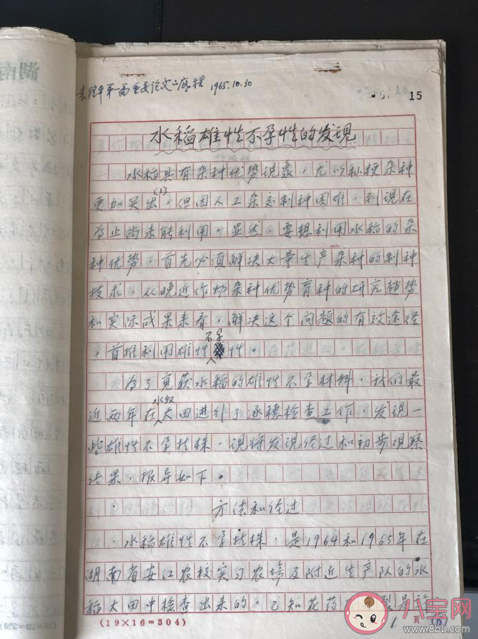 袁隆平第一篇重要论文之底稿 1965.10.30
15
水稻雄性不孕性的发现
水稻具有杂种优势现象，尤以籼粳杂种
更加突出(1)，但因人工杂交制种困难，到现在
为止尚未能利用。显然，要想利用水稻的杂
种优势，首先必须解决大量生产杂种的制种
技术，从晚近作物杂种优势育种的研究趋势
和实际成果来看，解决这个问题的有效途径
，首推利用雄性不孕性。
为了获求水稻的雄性不孕材料，我们最
近两年在水稻大田进行了逐穗检查工作，发现一
些雄性不孕植株，现将发现经过和初步观察
结果，报导如下。
方法和经过
水稻雄性不孕植株，是1964和1965年在
湖南省安江农校实习农场及附近生产队的水
稻大田中检查出来的。已知花药
(19×16=304)
八宝网